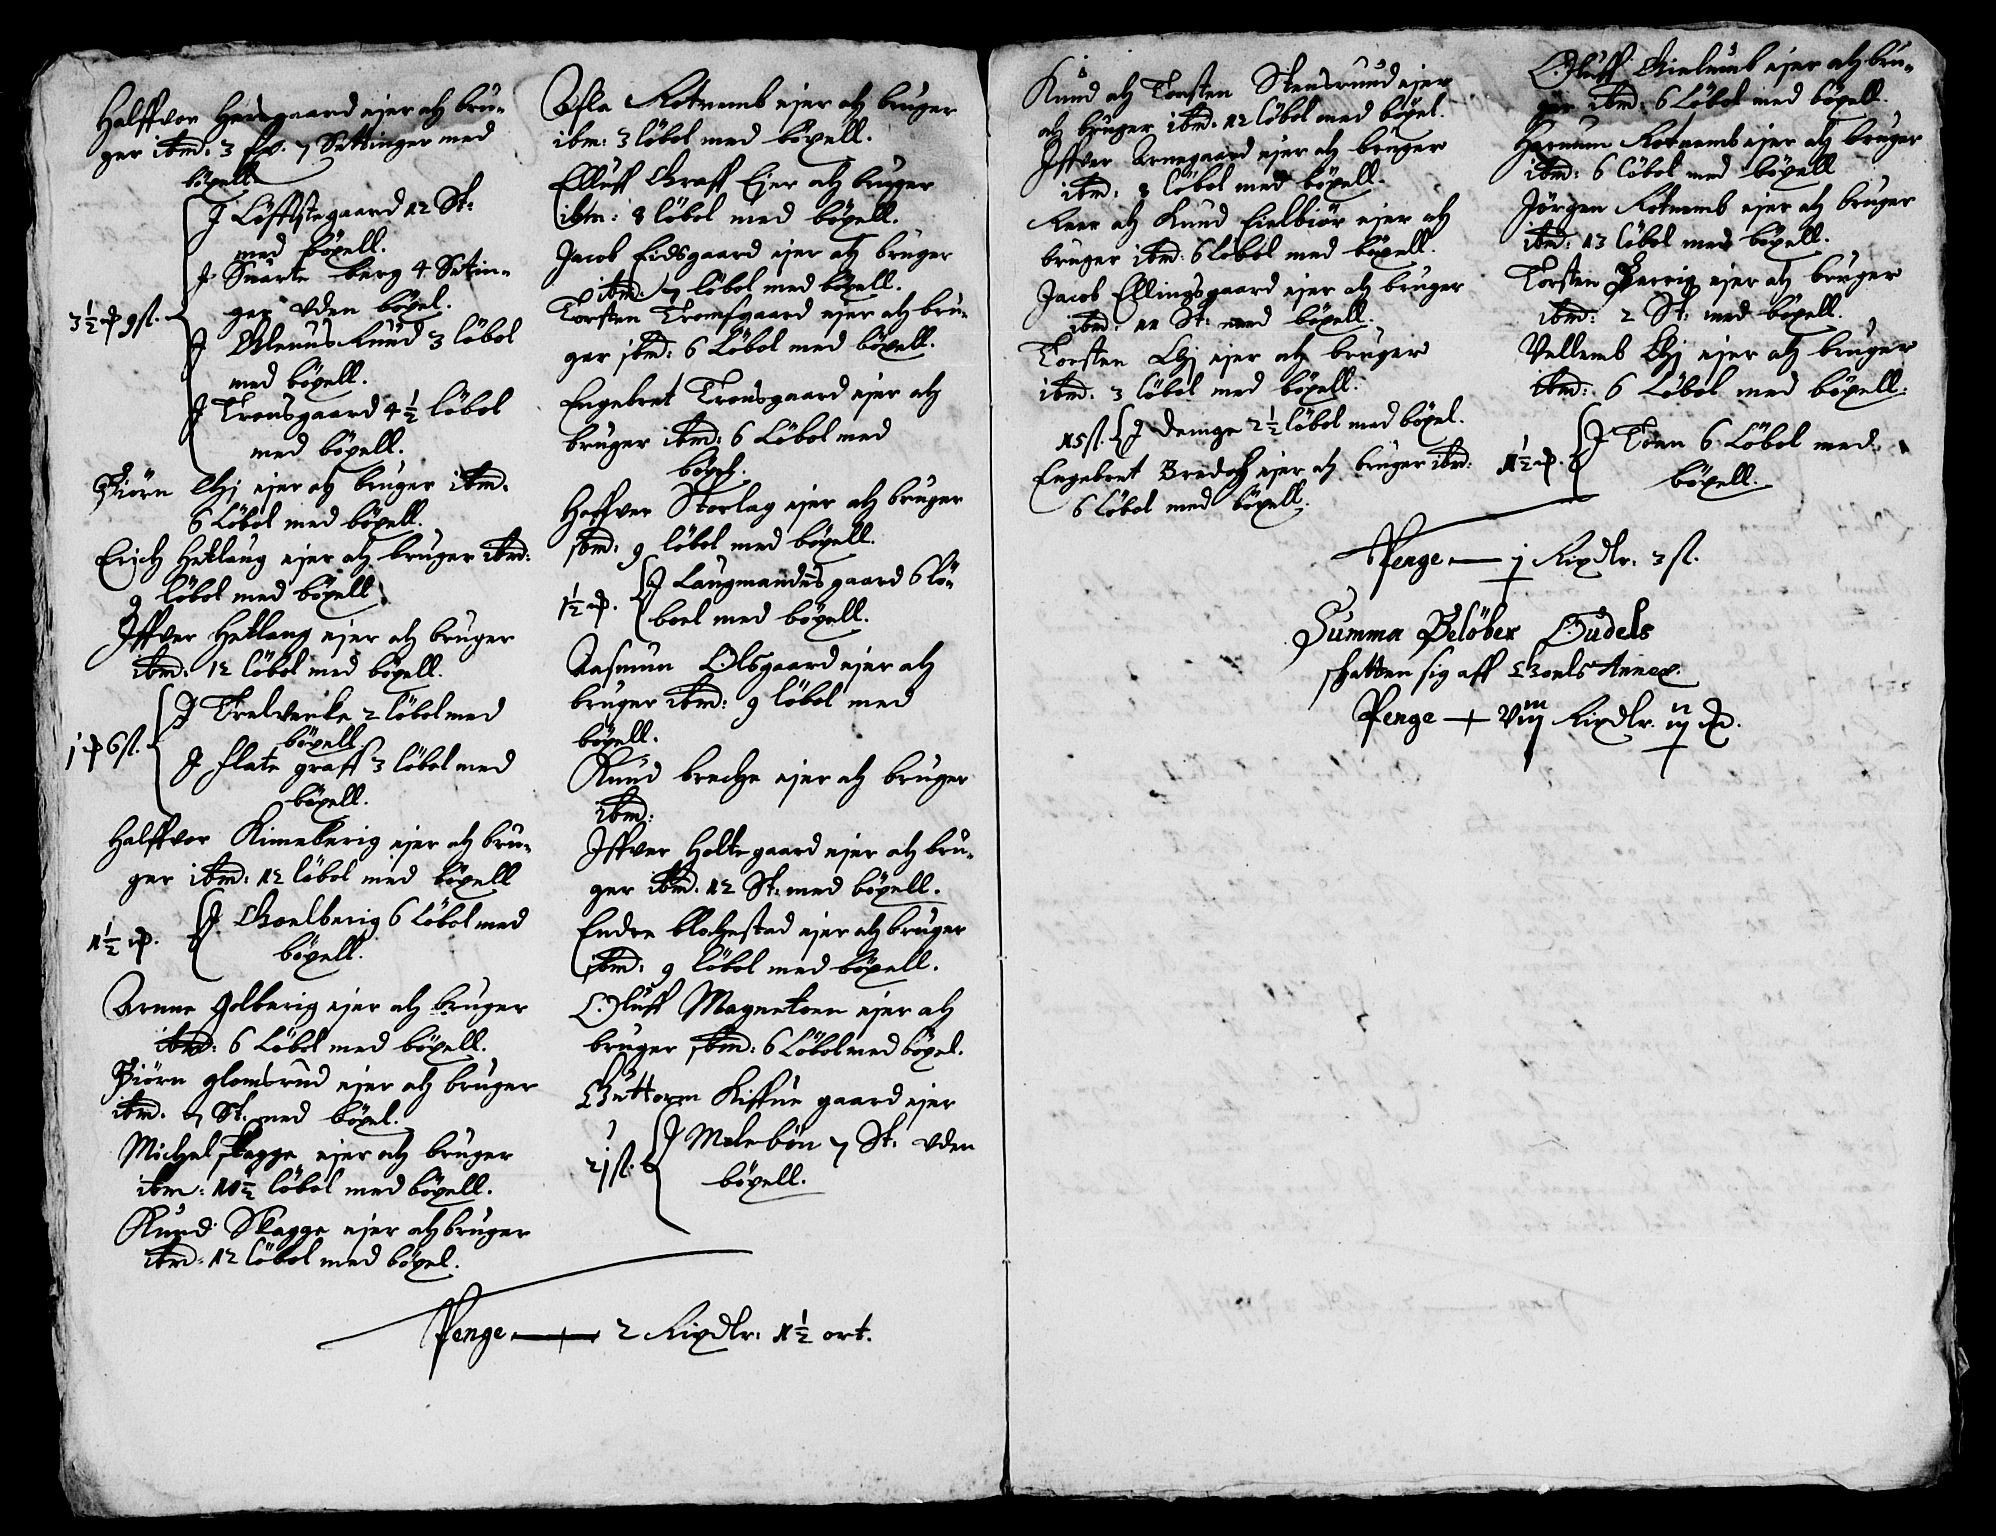 Halffvor Hersgaard ejer och bru-
ger ibmd: 3 7 Settinger med
böxell
J Löfftsgaard 12 St:
med böxell.
J Suarte berg 4 Setin-
ger vden böxel.
3½ 9 sl.
J Rund 3 löbol
med böxell.
J Tronsgaard 4½ löbol
med böxell.
Biörn Lhj ejer och bruger ibmd.
6 Löbol med böxell.
Erich Hetlaug ejer och bruger ibmd:
9 löbol med böxell
Jffver Hetlang ejer och bruger
ibmd: 12 löbol med böxell.
J Trelverke 2 löbol med
böxell
j 6 sl.
J flate graff 3 löbol med
böxell.
Halffvor Kimeberig ejer och bru-
ger ibmd: 12 löbol med böxell
1½
J Goelberig 6 Löbol med
böxell.
Arnne golberig ejer och bruger
ibmd: 6 Löbol med böxell.
Biörn glomsrud ejer och bruger
ibmd. 7 St. med böxel.
Michel skagge ejer och bruger
ibm: 10½ löbol med böxell.
Knud Skagge ejer och bruger
ibmd: 12 löbol med böxel.
Asla Rotnemb ejer och bruger
ibm: 3 löbol med böxell.
Elluff Graff Ejer och bruger
ibm: 8 löbol med böxell.
Jacob Eidsgaard ejer och bruger
ibmd: 7 löbol med böxell.
Torsten Tromsgaard ejer och bru-
ger ibmd: 6 Löbol med böxell.
Engebret Tronsgaard ejer och
bruger ibmd: 6 Löbol med
böxel.
Hoffver Storlag ejer och bruger
ibmd: 9 löbol med böxell.
1½
J Laugmandnsgaard 6 lö-
boel med böxell.
Aasmun Olsgaard ejer och
bruger ibmd: 9 löbol med
böxell.
Knud breche ejer och bruger
ibmd:
Jffver Holtegaard ejer och bru-
ger ibmd: 12 St: med böxell.
Endre Klochestad ejer och bruger
ibmd: 9 löbol med böxell.
Oluff Magnetoen ejer och
bruger ibmd: 6 Löbol med böxel.
Guttorm Kiffue gaard ejer
21 sl.
J Molebön 7 St: vden
böxell.
Penge 2 Rixdlr: 1½ ort.
Knud och Torsten Stensrund ejer
och bruger ibmd: 12 löbol med böxel.
Jffver Arnegaard ejer och bruger
ibmd: 8 löbol med böxell.
Roer och Knud Eielbiör ejer och
bruger ibmd: 6 Löbol med böxell.
Jacob Ellingsgaard ejer och bruger
ibmd: 11 St: med böxell.
Torsten Lhj ejer och bruger
ibmd: 3 löbol med böxell.
15 sl. J Deinge 2½ löbol med böxel.
Engebret Bredoch ejer och bruger ibmd:
6 Löbol med böxell.
Oluff Gielumb ejer och bru-
ger ibmd: 6 Löbol med böxell.
Hermun Rotnemb ejer och bruger
ibmd: 6 löbol med böxell
Jörgen Rotnemb ejer och bruger
ibmd: 13 löbol med böxell.
Torsten Berrig ejer och bruger
ibmd: 2 St: med böxell.
Vellemb Lhj ejer och bruger
ibmd: 6 Löbol med böxell.
1½
J Toen 6 Löbol med
böxell.
Penge j Rixdlr: 3 sl.
Summa Belöber Oudels
skatten sig aff Goels Annex.
Penge Rixdlr.